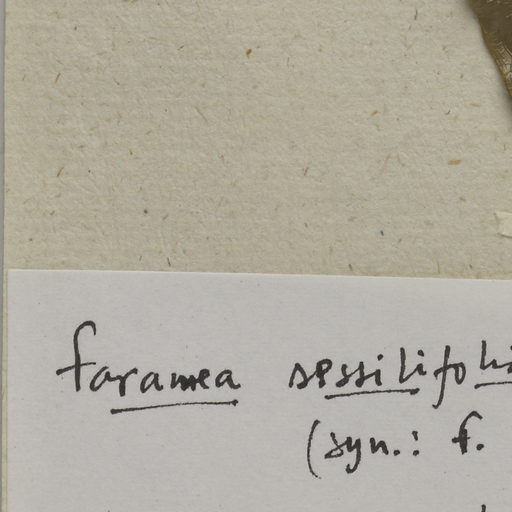 Faramea sessilifoli
(syn.: F.